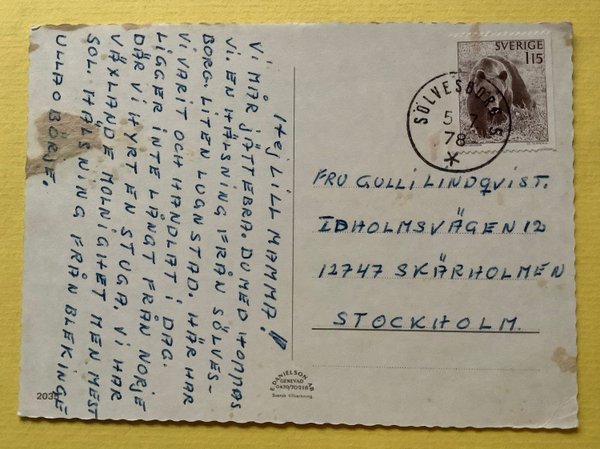 Hej LILL MAMMA!
VI MÅR JÄTTEBRA. DU MED HOPPAS
VI. EN HÄLSNING FRÅN SÖLVES-
BORG. LITEN LUGN STAD. HÄR HAR
VI VARIT OCH HANDLAT I DAG.
LIGGER INTE LÅNGT FRÅN NORJE
DÄR VI HYRT EN STUGA. VI HAR
VÄXLANDE MOLNIGHET MEN MEST
SOL. HÄLSNING FRÅN BLEKINGE
ULLA O BÖRJE.
SVERIGE
115
SÖLVESBORG S
78
FRU GULLI LINDQVIST.
IDHOLMSVÄGEN 12
12747 SKÄRHOLMEN
STOCKHOLM.
E. DANIELSON AB
GENEVAD
0430/70216
Svensk tillverkning